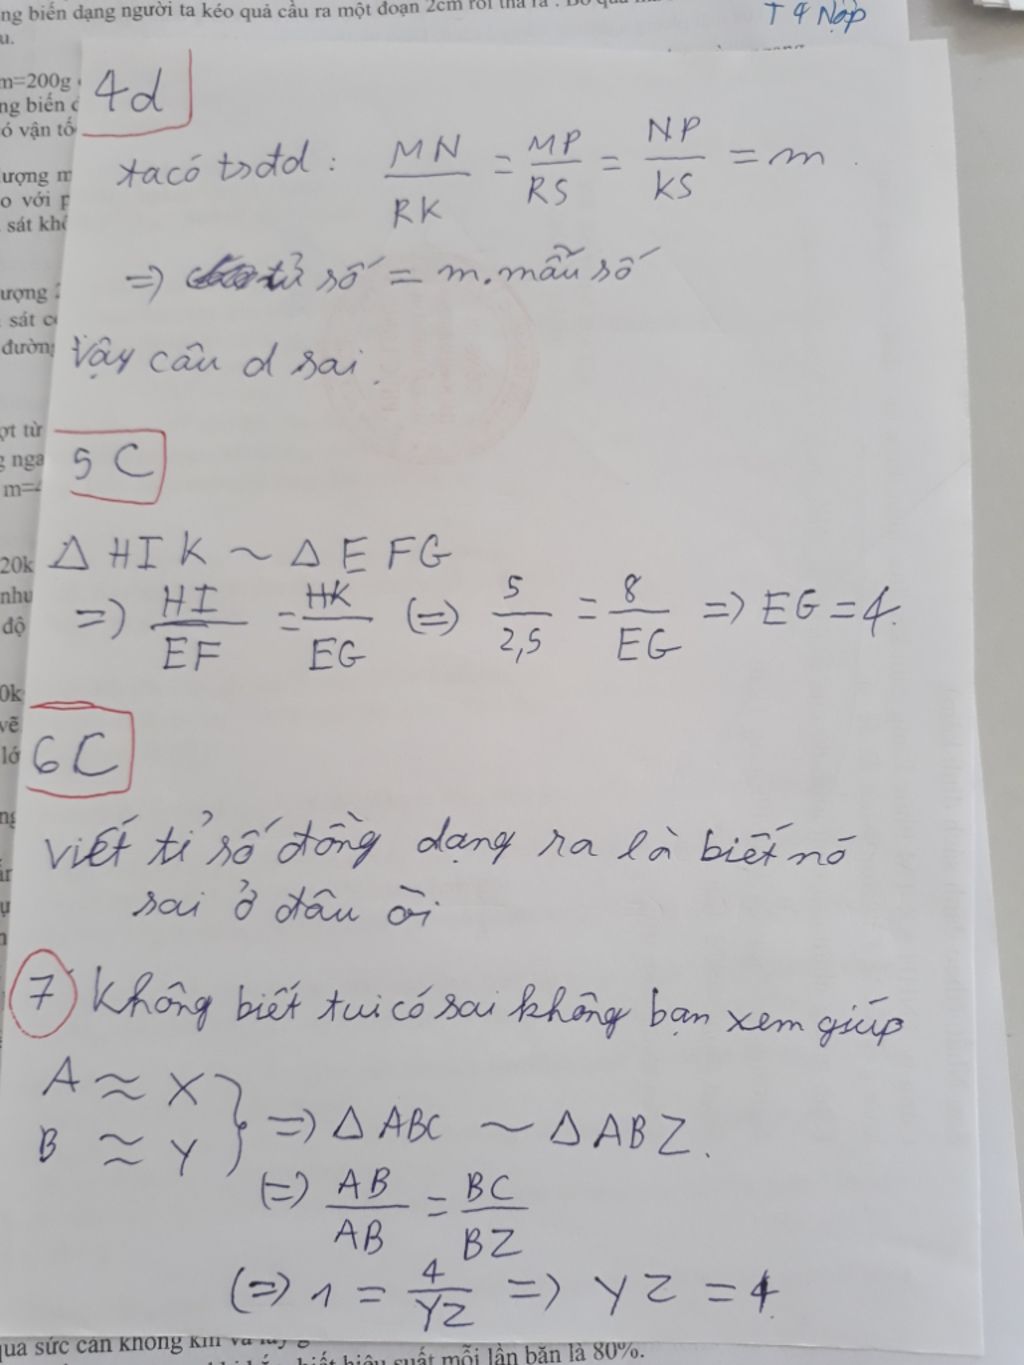 ng biến dạng người ta kéo quả cầu ra một đoạn 2cm rồi thả ra . Bỏ qua
T 4 Nộp
u.
m=200g
ng biến d
ó vận tố
ượng m
o với p
sát khô
ượng 2
sát c
đường
ợt từ
g nga
m=4
20k
như
độ
0k
vẽ
lớ
4d
ta có tsđd : MN/RK = MP/RS = NP/KS = m .
=> tử số = m . mẫu số
Vậy câu d sai .
5 C
Δ HIK ~ Δ EFG
=> HI/EF = HK/EG (=) 5/2,5 = 8/EG => EG = 4.
6C
viết tỉ số đồng dạng ra là biết nó
sai ở đâu òi
7 Không biết tui có sai không bạn xem giúp
A ≈ X
B ≈ Y } => Δ ABC ~ Δ ABZ .
(=) AB/AB = BC/BZ
(=) 1 = 4/YZ => YZ = 4
qua sức cản không khí và lấy g
biết hiệu suất mỗi lần bắn là 80%.